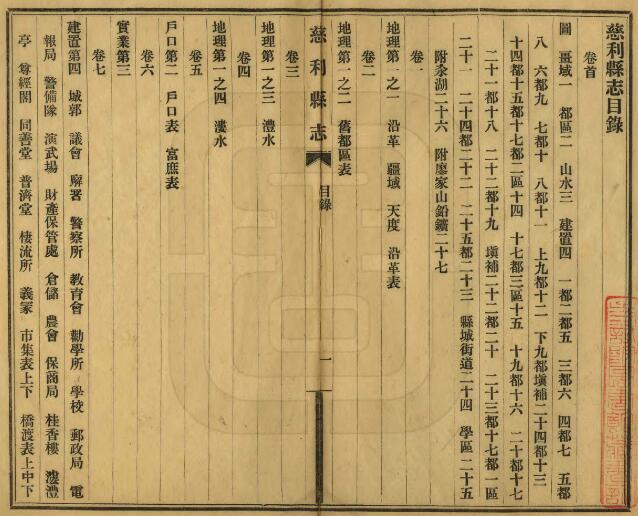 慈利縣志目錄
卷首
圖 畺域一 都區二 山水三 建置四 一都二都五 三都六 四都七 五都
八 六都九 七都十 八都十一 上九都十二 下九都塡補二十四都十三
十四都十五都十七都二區十四 十七都三區十五 十九都十六 二十都十七
二十一都十八 二十二都十九 塡補二十二都二十 二十三都十七都一區
二十一 二十四都二十二 二十五都二十三 縣城街道二十四 學區二十五
附汆湖二十六 附廖家山鉛鑛二十七
卷一
地理第一之一 沿革 疆域 天度 沿革表
卷二
地理第一之二 舊都區表
慈利縣志
目錄
一
卷三
地理第一之三 澧水
卷四
地理第一之四 漊水
卷五
戶口第二 戶口表 富庶表
卷六
實業第三
卷七
建置第四 城郭 議會 廨署 警察所 教育會 勸學所 學校 郵政局 電
報局 警備隊 演武場 財產保管處 倉儲 農會 保商局 桂香樓 漊澧
亭 尊經閣 同善堂 普濟堂 棲流所 義冢 市集表上下 橋渡表上中下